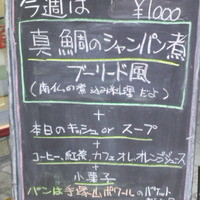 今週は ¥1000
真鯛のシャンパン煮
ブーリード風
(南仏の煮込み料理だよ)
+
本日のキッシュ or スープ
+
コーヒー、紅茶、カフェオレ、オレンジジュース
+
小菓子
パンは手塚山ポワールのバゲット